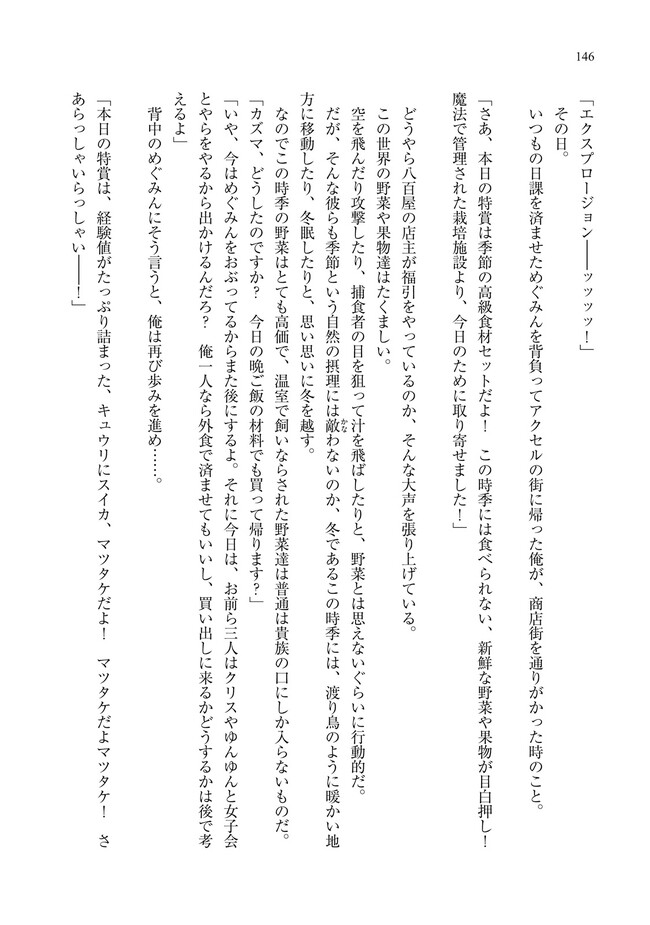 146
「エクスプロージョン――ッッッッ！」
　その日。
　いつもの日課を済ませためぐみんを背負ってアクセルの街に帰った俺が、商店街を通りがかった時のこと。
「さあ、本日の特賞は季節の高級食材セットだよ！　この時季には食べられない、新鮮な野菜や果物が目白押し！
魔法で管理された栽培施設より、今日のために取り寄せました！」
　どうやら八百屋の店主が福引をやっているのか、そんな大声を張り上げている。
　この世界の野菜や果物達はたくましい。
　空を飛んだり攻撃したり、捕食者の目を狙って汁を飛ばしたりと、野菜とは思えないぐらいに行動的だ。
　だが、そんな彼らも季節という自然の摂理には敵わないのか、冬であるこの時季には、渡り鳥のように暖かい地
方に移動したり、冬眠したりと、思い思いに冬を越す。
　なのでこの時季の野菜はとても高価で、温室で飼いならされた野菜達は普通は貴族の口にしか入らないものだ。
「カズマ、どうしたのですか？　今日の晩ご飯の材料でも買って帰ります？」
「いや、今はめぐみんをおぶってるからまた後にするよ。それに今日は、お前ら三人はクリスやゆんゆんと女子会
とやらをやるから出かけるんだろ？　俺一人なら外食で済ませてもいいし、買い出しに来るかどうするかは後で考
えるよ」
　背中のめぐみんにそう言うと、俺は再び歩みを進め……。
「本日の特賞は、経験値がたっぷり詰まった、キュウリにスイカ、マツタケだよ！　マツタケだよマツタケ！　さ
あらっしゃいらっしゃい――！」